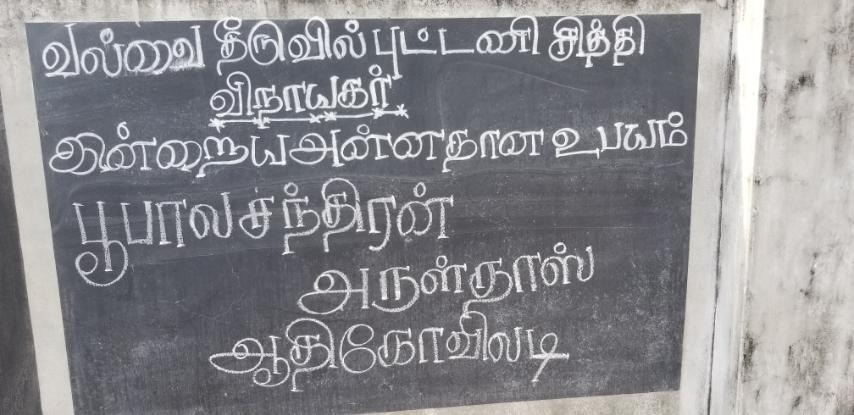 வல்வை தீருவில் புட்டணி சித்தி
விநாயகர்
இன்றைய அன்னதான உபயம்
பூபாலசந்திரன்
அருள்தாஸ்
ஆதிகோவிலடி